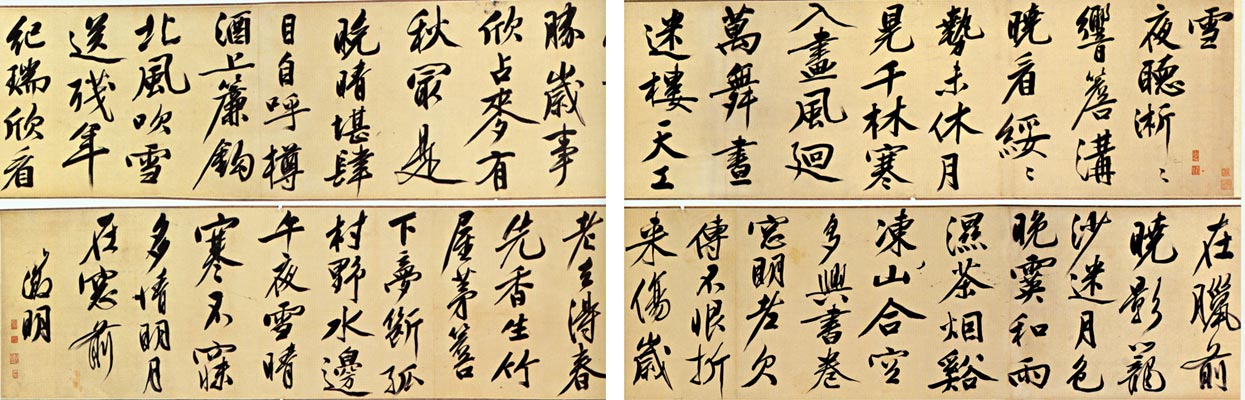 雪
夜聽淅〻
響簷溝
曉看綏〻
勢未休月
晃千林寒
入盡風迴
萬舞晝
迷樓天工
勝歲事
欣占麥有
秋冣是
晚晴堪肆
目自呼樽
酒上簾鉤
北風吹雪
送殘年
紀瑞欣看
在臘前
曉影籠
沙迷月色
晚霙和雨
濕茶烟谿
凍山合空
多興書卷
窓明老欠
傳不恨折
来傷歲
老去得春
先香生竹
屋茅簷
下夢斷孤
村野水邊
午夜雪晴
寒不寐
多情明月
在窓前
徵明